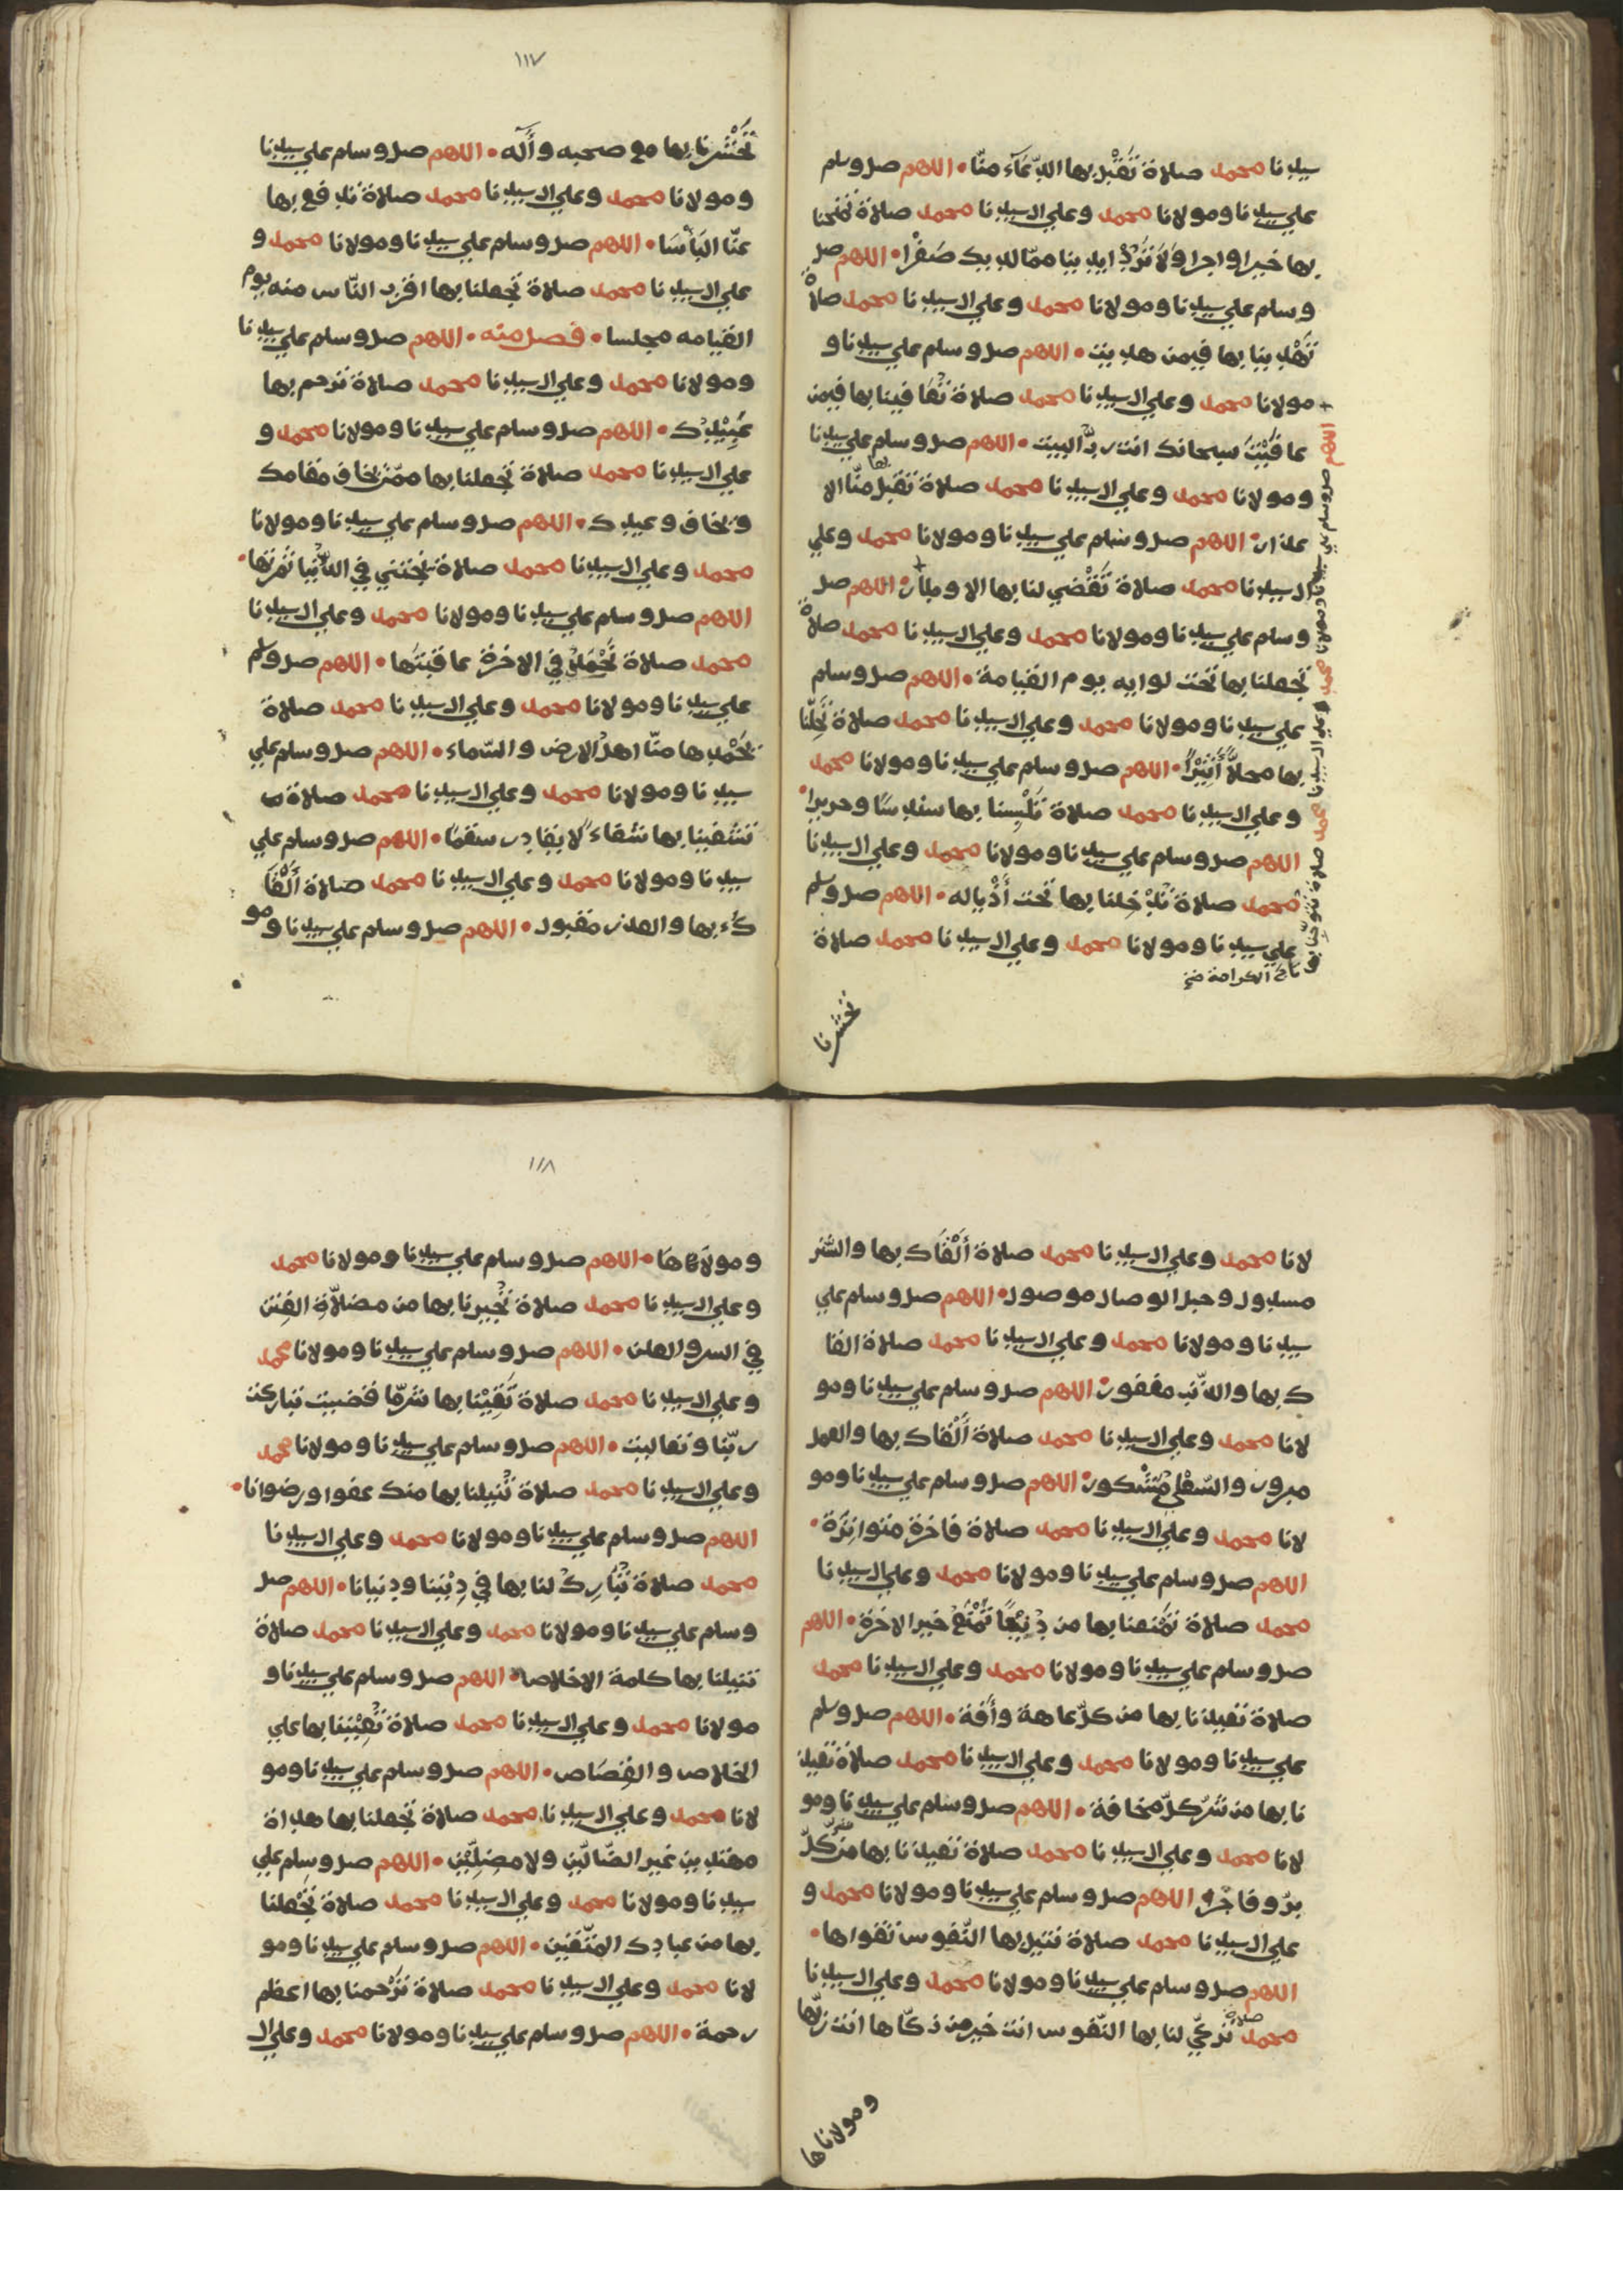 سيدنا محمد صلاة تَقَبَّل بها الدّعَآء منّا • اللهم صل وسلم
علي سيدنا ومولانا محمد وعلي ال سيدنا محمد صلاة تمنحنا
بها خيرا واجرا وَلَا تَرُدَّ ايدينا ممّا لديك صَفْرا • اللهم صل
وسلم علي سيدنا ومولانا محمد وعلي ال سيدنا محمد صلاة
تَهْدِينا بها فيمن هديت • اللهم صل وسلم علي سيدنا و
مولانا محمد وعلي ال سيدنا محمد صلاة تُعَافينا بها فيمن
عافَيْتَ سبحانك انت ربُّ البيت • اللهم صل وسلم علي سيدنا
ومولانا محمد وعلي ال سيدنا محمد صلاة تَقَبَّل بها منّا الا
عذار • اللهم صل وسلم علي سيدنا ومولانا محمد وعلي
ال سيدنا محمد صلاة تَقْضي لنا بها الاوطار • اللهم صل
وسلم علي سيدنا ومولانا محمد وعلي ال سيدنا محمد صلاة
تجعلنا بها تحت لوايه يوم القيامة • اللهم صل وسلم
علي سيدنا ومولانا محمد وعلي ال سيدنا محمد صلاة تُحِلّنا
بها محلاًّ أَثِيْرًا • اللهم صل وسلم علي سيدنا ومولانا محمد
وعلي ال سيدنا محمد صلاة تُلْبِسنا بها سندسًا وحريرا •
اللهم صل وسلم علي سيدنا ومولانا محمد وعلي ال سيدنا
محمد صلاة تُدْخِلنا بها تحت أَذْياله • اللهم صل وسلم
علي سيدنا ومولانا محمد وعلي ال سيدنا محمد صلاة
اللهم صل وسلم علي سيدنا ومولانا محمد وعلي ال سيدنا محمد صلاة تتوّجنا بها
تاج الكرامة صح
تحشرنا
١١٧
تَحْشُرنا بها مع صحبه وأٓله • اللهم صل وسلم علي سيدنا
ومولانا محمد وعلي ال سيدنا محمد صلاة تدفع بها
عنّا البَأْسَا • اللهم صل وسلم علي سيدنا ومولانا محمد و
علي ال سيدنا محمد صلاة تجعلنا بها اقرب النّاس منه يوم
القيامه مجلسا • فصل منه • اللهم صل وسلم علي سيدنا
ومولانا محمد وعلي ال سيدنا محمد صلاة ترحم بها
عَبِيْدِك • اللهم صل وسلم علي سيدنا ومولانا محمد و
علي ال سيدنا محمد صلاة تجعلنا بها ممّن يخاف مقامك
ويخاف وعيدك • اللهم صل وسلم علي سيدنا ومولانا
محمد وعلي ال سيدنا محمد صلاة نجتني في الدُّنْيا ثمرتها •
اللهم صل وسلم علي سيدنا ومولانا محمد وعلي ال سيدنا
محمد صلاة نَحْمَدُ في الاخرة عاقبَتَها • اللهم صل وسلم
علي سيدنا ومولانا محمد وعلي ال سيدنا محمد صلاة
يَحْمدها منّا اهل الارض والسّماء • اللهم صل وسلم علي
سيدنا ومولانا محمد وعلي ال سيدنا محمد صلاة
تشفينا بها شفاءً لا يغادر سقمًا • اللهم صل وسلم علي
سيدنا ومولانا محمد وعلي ال سيدنا محمد صلاة أَلْقَا
كَ بها والعذر مقبول • اللهم صل وسلم علي سيدنا ومو
لانا محمد وعلي ال سيدنا محمد صلاة أَلْقَاك بها والسِّتر
مسدول وحبل الوصال موصول • اللهم صل وسلم علي
سيدنا ومولانا محمد وعلي ال سيدنا محمد صلاة القا
ك بها والذّنب مغفور • اللهم صل وسلم علي سيدنا ومو
لانا محمد وعلي ال سيدنا محمد صلاة أَلْقَاك بها والعمل
مبرور والسّعْي مَشْكور • اللهم صل وسلم علي سيدنا ومو
لانا محمد وعلي ال سيدنا محمد صلاة فاخرة متواترة •
اللهم صل وسلم علي سيدنا ومولانا محمد وعلي ال سيدنا
محمد صلاة تمتعنا بها من خير الاخرة • اللهم
صل وسلم علي سيدنا ومولانا محمد وعلي ال سيدنا محمد
صلاة تعيذنا بها من كلّ عاهة وأفة • اللهم صل وسلم
علي سيدنا ومولانا محمد وعلي ال سيدنا محمد صلاة تعيذ
نا بها من شرّ كلّ مخافة • اللهم صل وسلم علي سيدنا ومو
لانا محمد وعلي ال سيدنا محمد صلاة تعيذنا بها من شرّ كلّ
برّ وفاجر • اللهم صل وسلم علي سيدنا ومولانا محمد و
علي ال سيدنا محمد صلاة تنيل بها النّفوس تقواها •
اللهم صل وسلم علي سيدنا ومولانا محمد وعلي ال سيدنا
محمد صلاة تزكّي لنا بها النّفوس انت خير من زكّاها انت ربّها
ومولاناها
١١٨
ومولاها • اللهم صل وسلم علي سيدنا ومولانا محمد
وعلي ال سيدنا محمد صلاة تُجِيرنا بها من مضلاّة الفِتن
في السر والعلن • اللهم صل وسلم علي سيدنا ومولانا محمد
وعلي ال سيدنا محمد صلاة تَقِيْنا بها شرّما قضيت تباركت
ربّنا وتعاليت • اللهم صل وسلم علي سيدنا ومولانا محمد
وعلي ال سيدنا محمد صلاة تُنيلنا بها منك عفوا ورضوانا •
اللهم صل وسلم علي سيدنا ومولانا محمد وعلي ال سيدنا
محمد صلاة تُبَارِكْ لنا بها في دِيْنِنا ودنيانا • اللهم صل
وسلم علي سيدنا ومولانا محمد وعلي ال سيدنا محمد صلاة
تنيلنا بها كلمة الاخلاص • اللهم صل وسلم علي سيدنا و
مولانا محمد وعلي ال سيدنا محمد صلاة تُعِيْنِنا بها علي
الخلاص والقِصَاص • اللهم صل وسلم علي سيدنا ومو
لانا محمد وعلي ال سيدنا محمد صلاة تجعلنا بها هداة
مهتدين غير الضّالّين ولا مضلِّيْن • اللهم صل وسلم علي
سيدنا ومولانا محمد وعلي ال سيدنا محمد صلاة تَجْعلنا
بها من عبادك المتّقين • اللهم صل وسلم علي سيدنا ومو
لانا محمد وعلي ال سيدنا محمد صلاة تَرْحمنا بها اعظم
رحمة • اللهم صل وسلم علي سيدنا ومولانا محمد وعلي ال